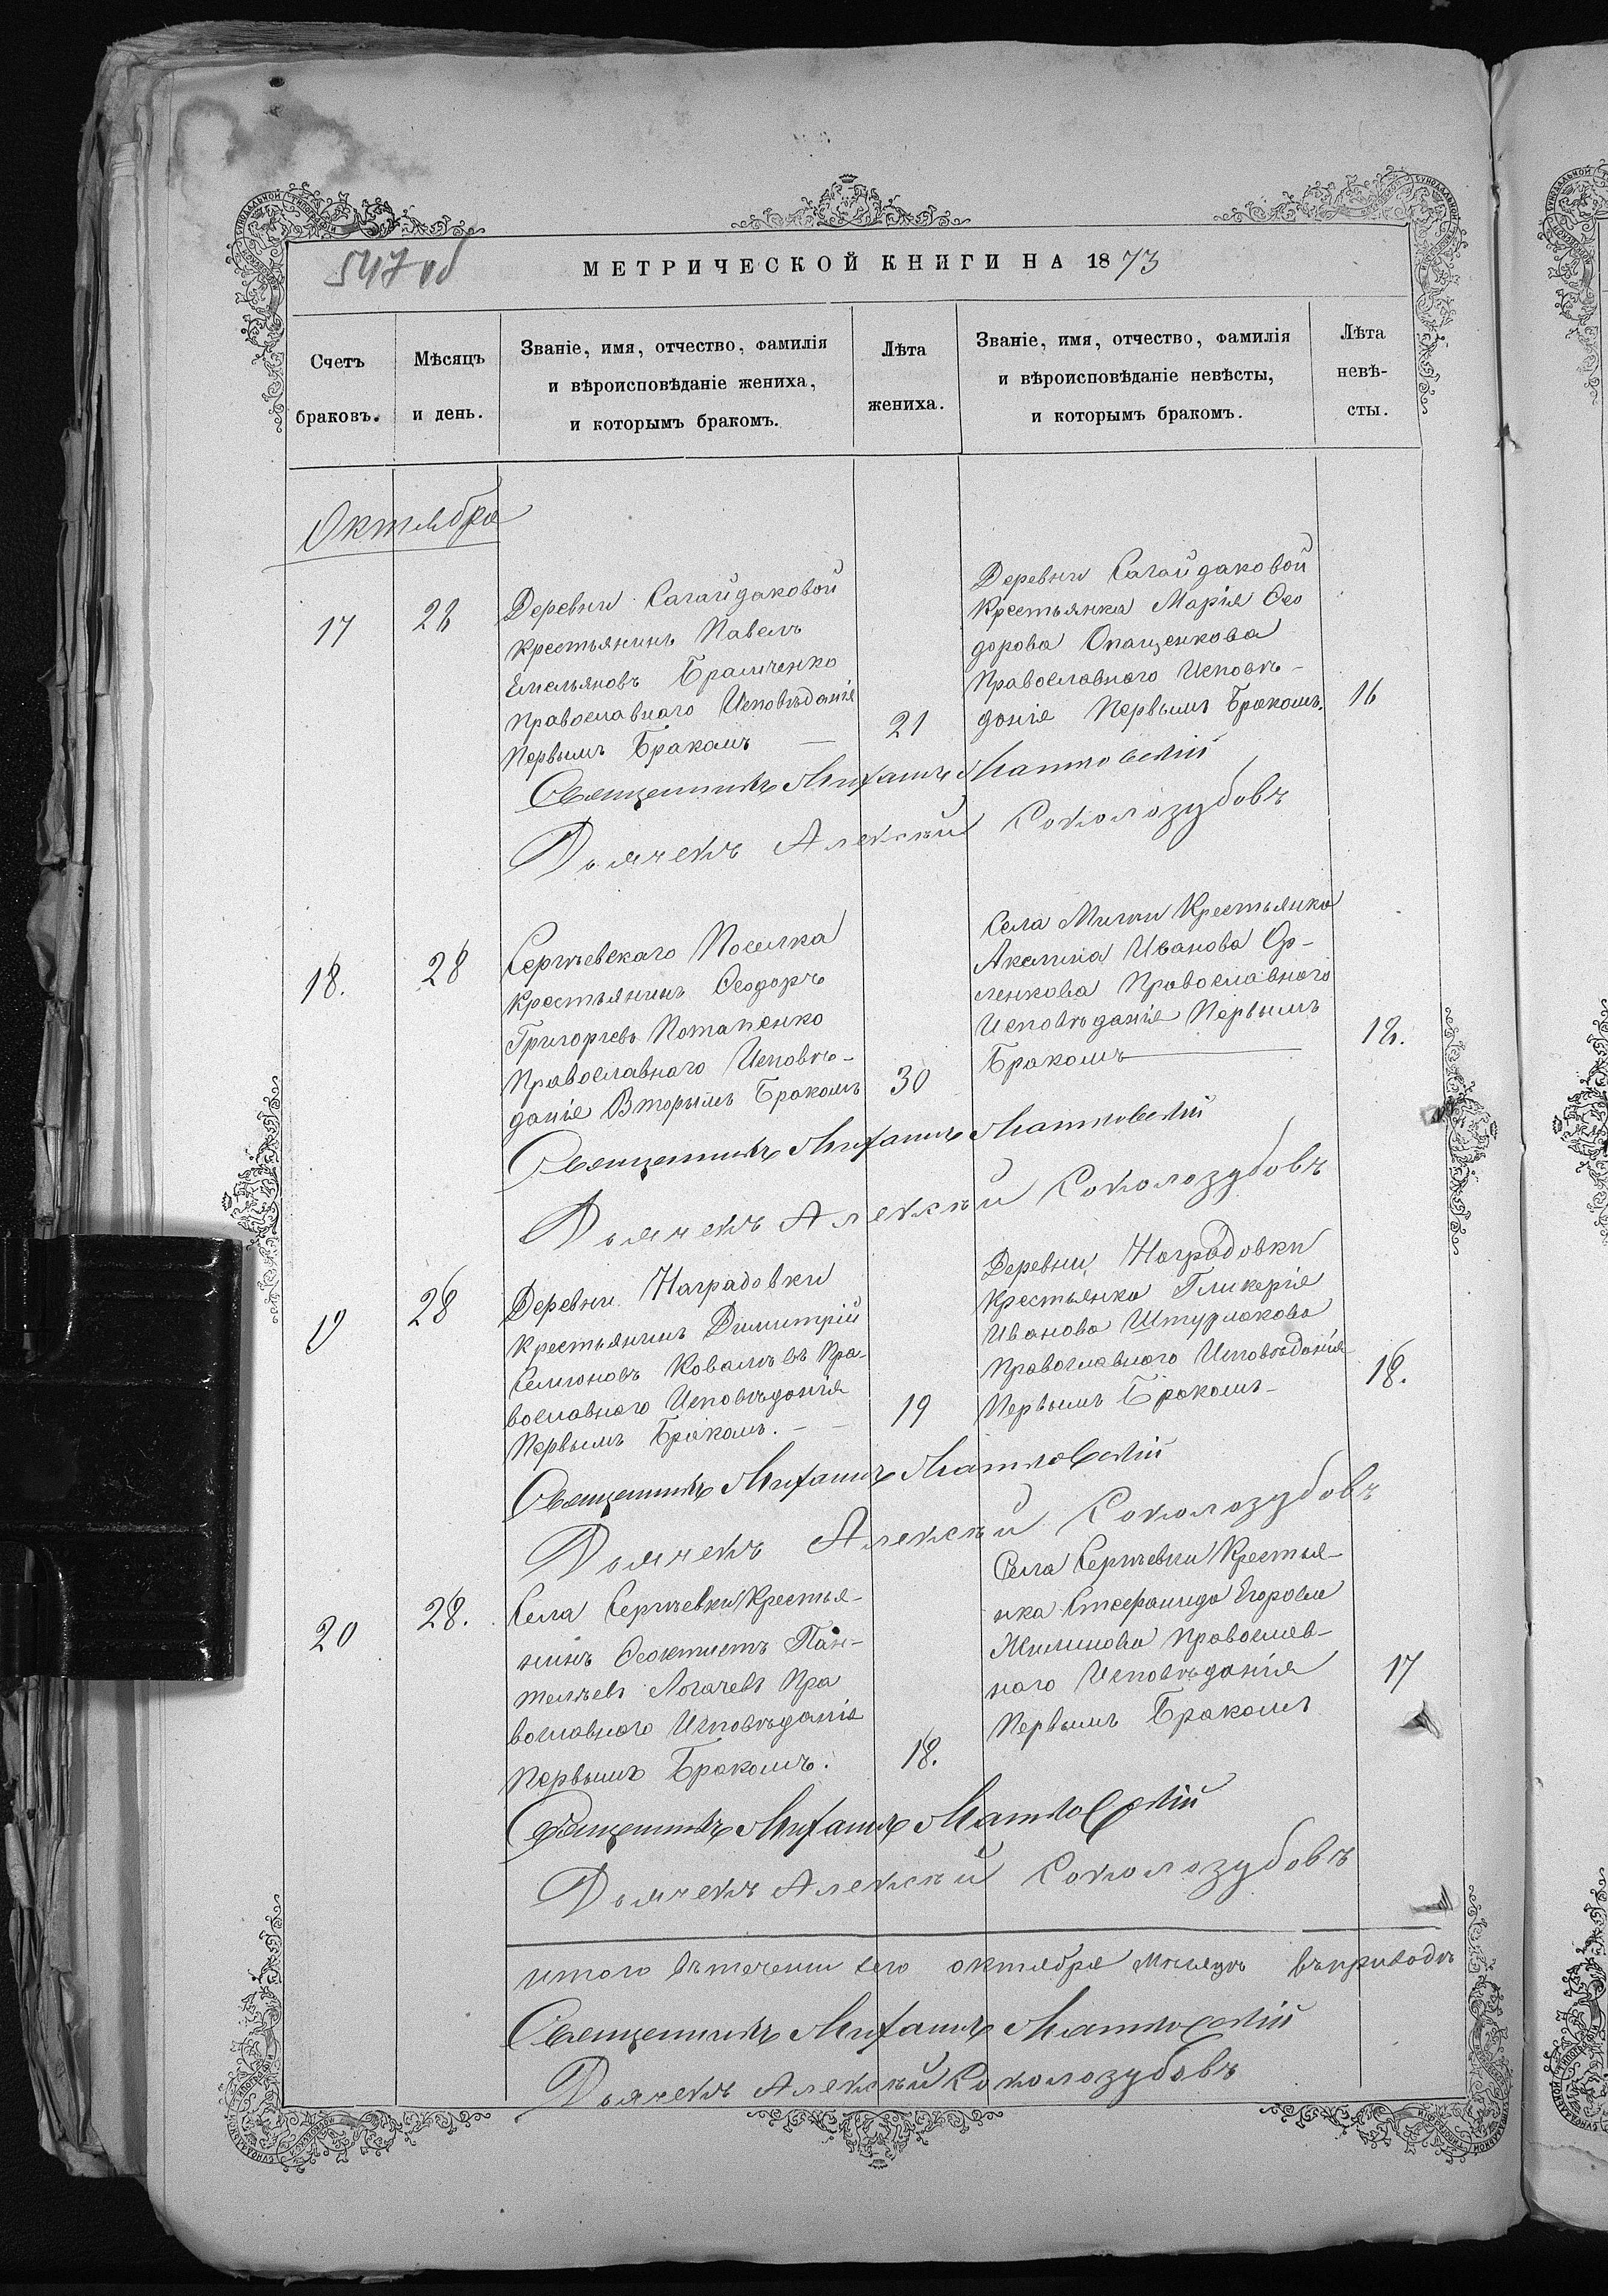 547 об
МЕТРИЧЕСКОЙ КНИГИ НА 1873
Счетъ
браковъ.
Мѣсяцъ
и день.
Званіе, имя, отчество, фамилія
и вѣроисповѣданіе жениха,
и которымъ бракомъ.
Лѣта
жениха.
Званіе, имя, отчество, фамилія
и вѣроисповѣданіе невѣсты,
и которымъ бракомъ.
Лѣта
невѣ-
сты.
Октября
17
28
Деревни Сагайдаковой
Крестьянинъ Павелъ
Емельяновъ
Православнаго Исповѣданія
Первымъ Бракомъ —
21
Деревни Сагайдаковой
Крестьянка Марія Ѳео
дорова Опащенкова
Православнаго Исповѣ-
данія Первымъ Бракомъ.
16
Священникъ Михаилъ
Дьячекъ Алексѣй Соколозубовъ
18.
28
Сергѣевскаго Поселка
Крестьянинъ Ѳеодоръ
Григорьевъ Потапенко
Православнаго Исповѣ-
данія Вторымъ Бракомъ
30
Села Крестьянка
Акилина Иванова Ор-
ленкова Православнаго
Исповѣданія Первымъ
Бракомъ
18.
Священникъ Михаилъ
Дьячекъ Алексѣй Соколозубовъ
19
28
Деревни Наградовки
Крестьянинъ Димитрій
Семионовъ Ковалѣвъ Пра-
вославнаго Исповѣданія
Первымъ Бракомъ. —
19
Деревни Наградовки
Крестьянка Гликерія
Иванова Штурлакова
Православнаго Исповѣданія
Первымъ Бракомъ-
18.
Священникъ Михаилъ
Дьячекъ Алексѣй Соколозубовъ
20
28.
Села Сергѣевки Крестья-
нинъ Ѳеоктистъ Пан-
телѣевъ Логачевъ Пра
вославнаго Исповѣданія
Первымъ Бракомъ.
18.
Села Сергѣевки Крестья-
нка Стефанида Егорова
Жилинова Православ-
наго Исповѣданія
Первымъ Бракомъ
17
Священникъ Михаилъ
Дьячекъ Алексѣй Соколозубовъ
итого въ течении сего октября мѣсяцѣ въ приходѣ
Священникъ Михаилъ
Дьячекъ Алексѣй Соколозубовъ